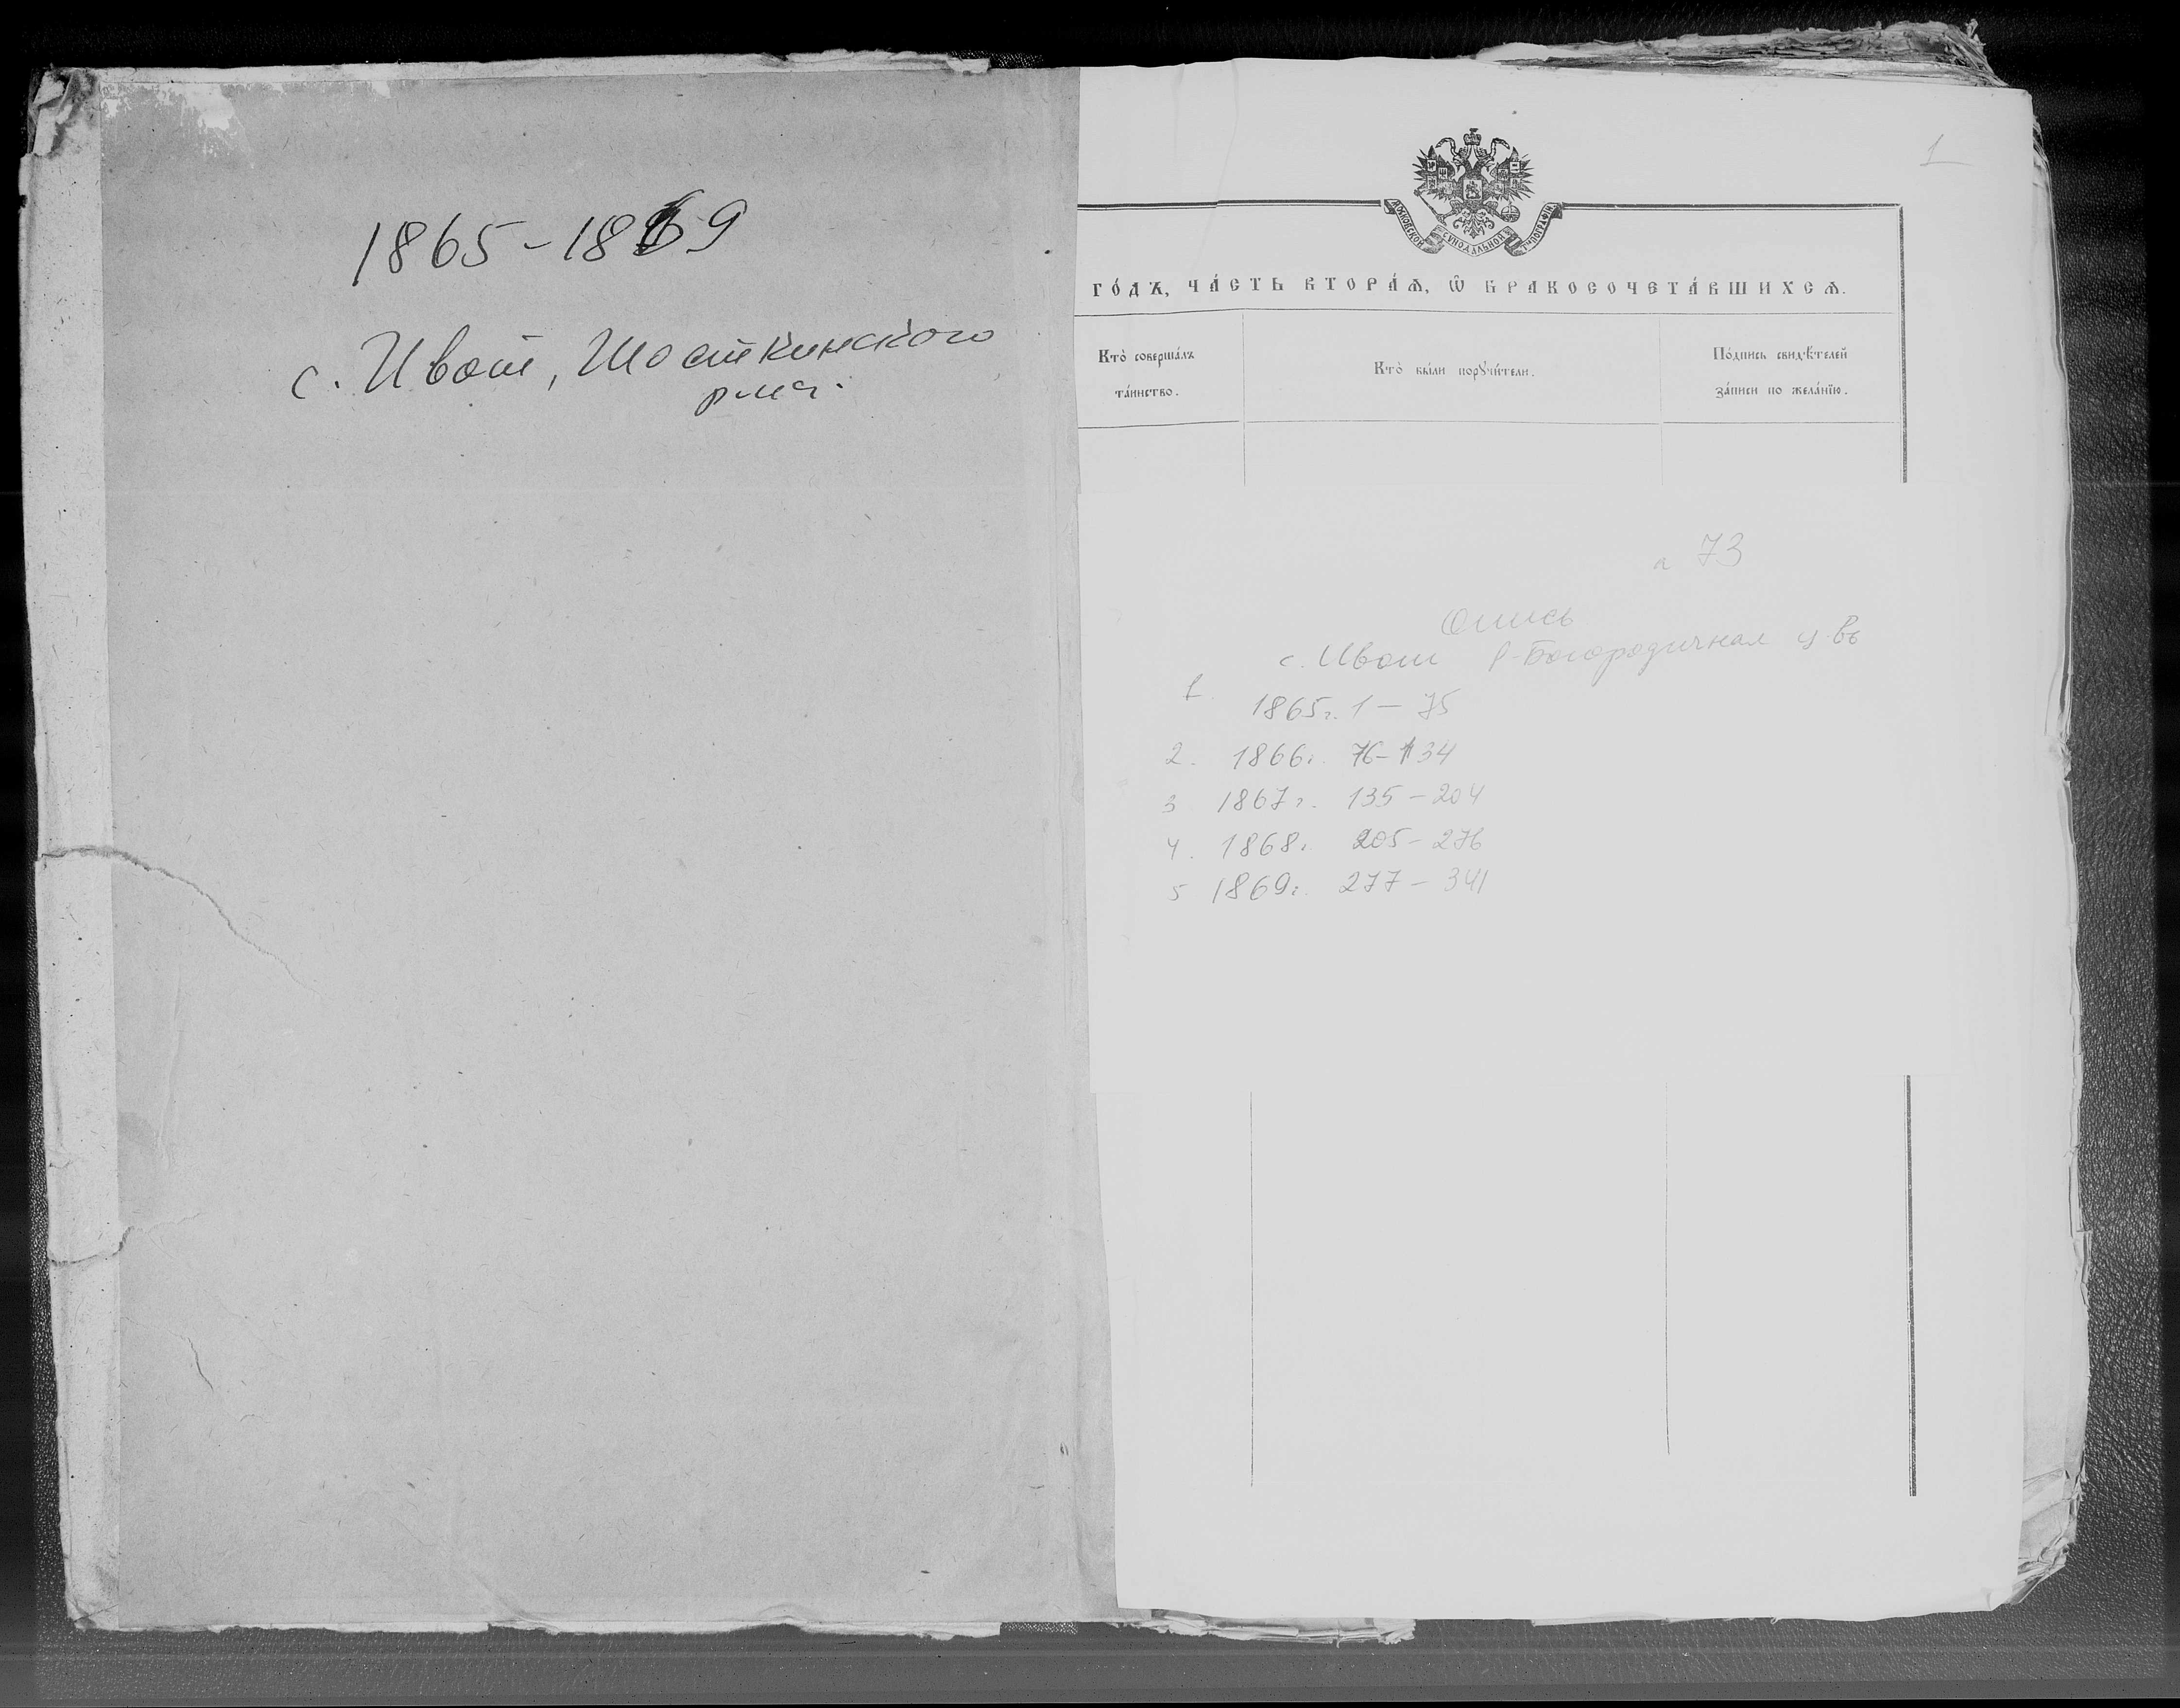 1865-1869
с. Ивот, Шосткинского
р-на.
1
МОСКОВСКОЙ СУНОДАЛЬНОЙ ТИПОГРАФІИ
ГО́ДЪ, ЧА́СТЬ ВТОРА́Ѧ, Ѿ БРАКОСОЧЕТА́ВШИХСѦ.
Кто̀ соверша́лъ
та́инство.
Кто̀ бы́ли порꙋчи́тели.
По́дпись свидѣ́телей
за́писи по жела́нїю.
73
Опись
с. Ивот Р-Богородичная ц-вь
1. 1865г. 1 — 75
2. 1866г. 76-134
3 1867г. 135-204
4. 1868г. 205-276
5 1869г. 277-341